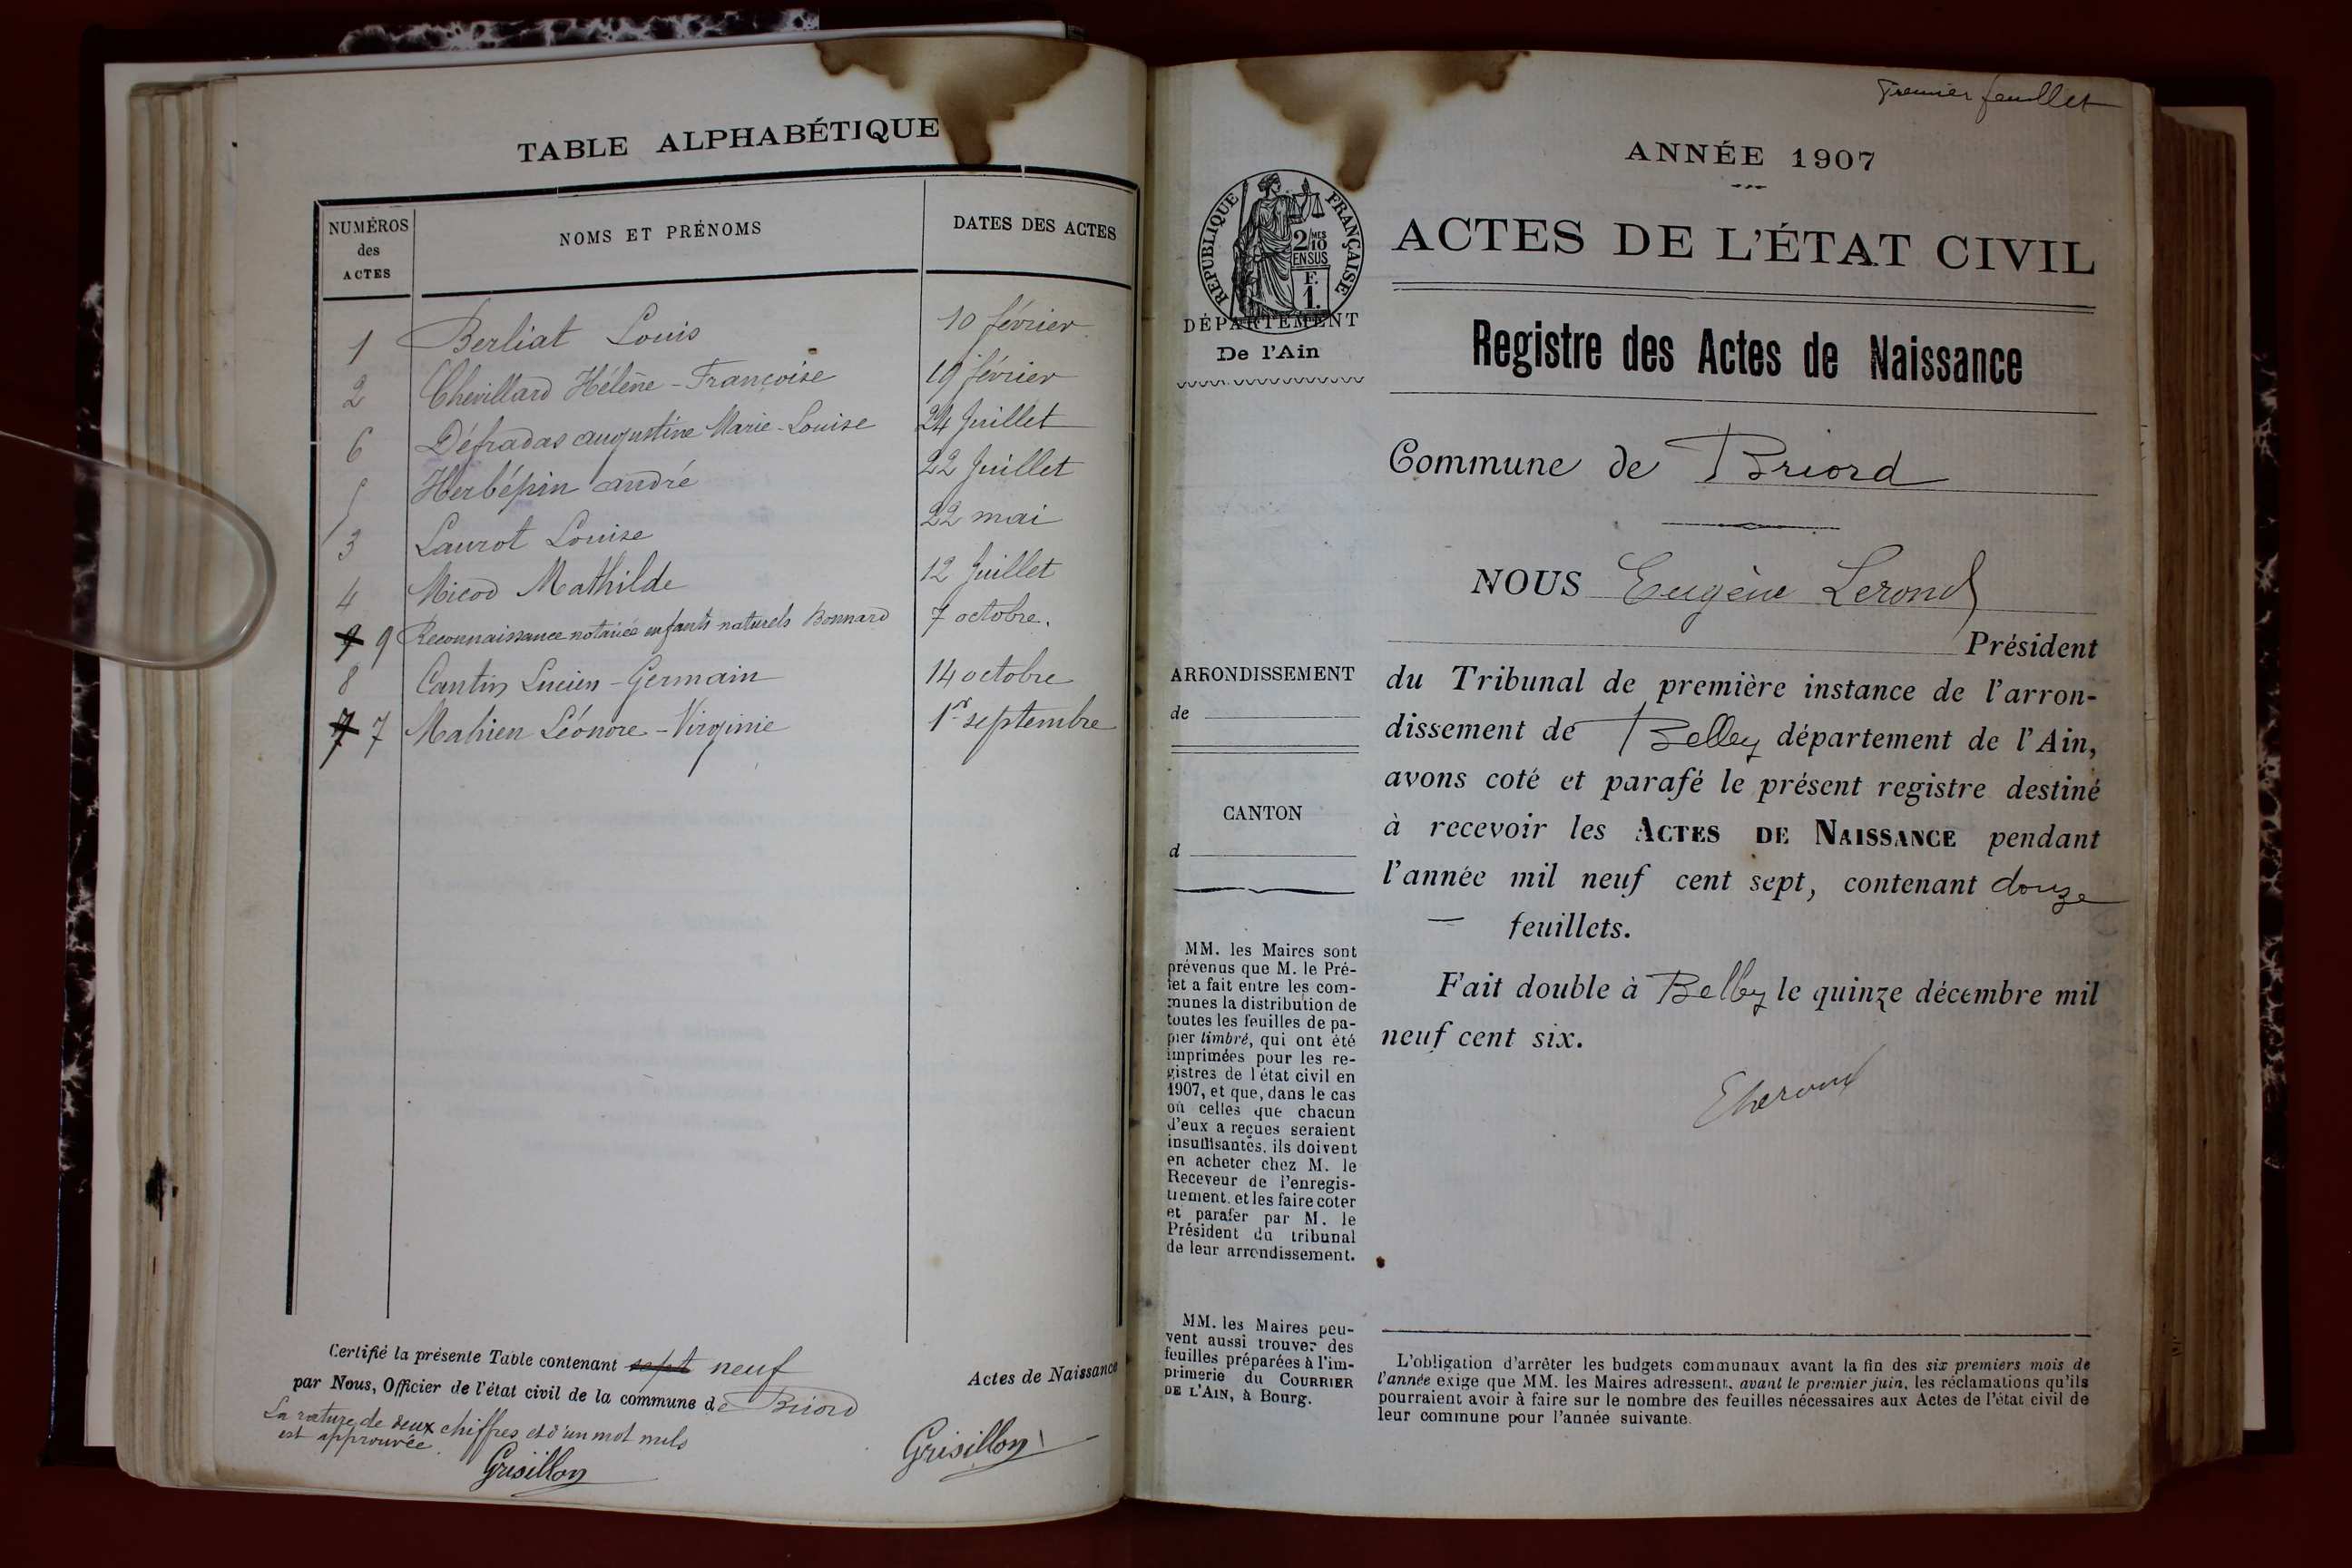 TABLE ALPHABÉTIQUE
NUMÉROS des ACTES
NOMS ET PRÉNOMS
DATES DES ACTES
1 Berliat Louis 10 février
2 Chevillard Hélène-Françoise 19 février
6 Défradas augustine Marie-Louise 24 Juillet
5 Herbépin andré 22 Juillet
3 Laurot Louise 22 mai
4 Micod Mathilde 12 Juillet
9 9 Reconnaissance notariée enfants naturels Bonnard 7 octobre.
8 Cantin Lucien-Germain 14 octobre
7 7 Mahien Léonore-Virginie 1er septembre
Certifié la présente Table contenant sept neuf Actes de Naissance
par Nous, Officier de l'état civil de la commune de Briord
La rature de deux chiffres et d'un mot nuls
est approuvée.
Grisillon
Grisillon
Premier feuillet
ANNÉE 1907
RÉPUBLIQUE FRANÇAISE
2/10 MES
EN SUS
F.
1.
ACTES DE L'ÉTAT CIVIL
DÉPARTEMENT
De l'Ain
Registre des Actes de Naissance
Commune de Briord
NOUS Eugène Lerond
Président
ARRONDISSEMENT
de
CANTON
d
du Tribunal de première instance de l'arron-
dissement de Belley département de l'Ain,
avons coté et parafé le présent registre destiné
à recevoir les ACTES DE NAISSANCE pendant
l'année mil neuf cent sept, contenant douze
— feuillets.
Fait double à Belley le quinze décembre mil
neuf cent six.
ELerond
MM. les Maires sont
prévenus que M. le Pré-
fet a fait entre les com-
munes la distribution de
toutes les feuilles de pa-
pier timbré, qui ont été
imprimées pour les re-
gistres de l'état civil en
1907, et que, dans le cas
où celles que chacun
d'eux a reçues seraient
insuffisantes, ils doivent
en acheter chez M. le
Receveur de l'enregis-
trement. et les faire coter
et parafer par M. le
Président du tribunal
de leur arrondissement.
MM. les Maires peu-
vent aussi trouver des
feuilles préparées à l'im-
primerie du COURRIER
DE L'AIN, à Bourg.
L'obligation d'arrêter les budgets communaux avant la fin des six premiers mois de
l'année exige que MM. les Maires adressent, avant le premier juin, les réclamations qu'ils
pourraient avoir à faire sur le nombre des feuilles nécessaires aux Actes de l'état civil de
leur commune pour l'année suivante.